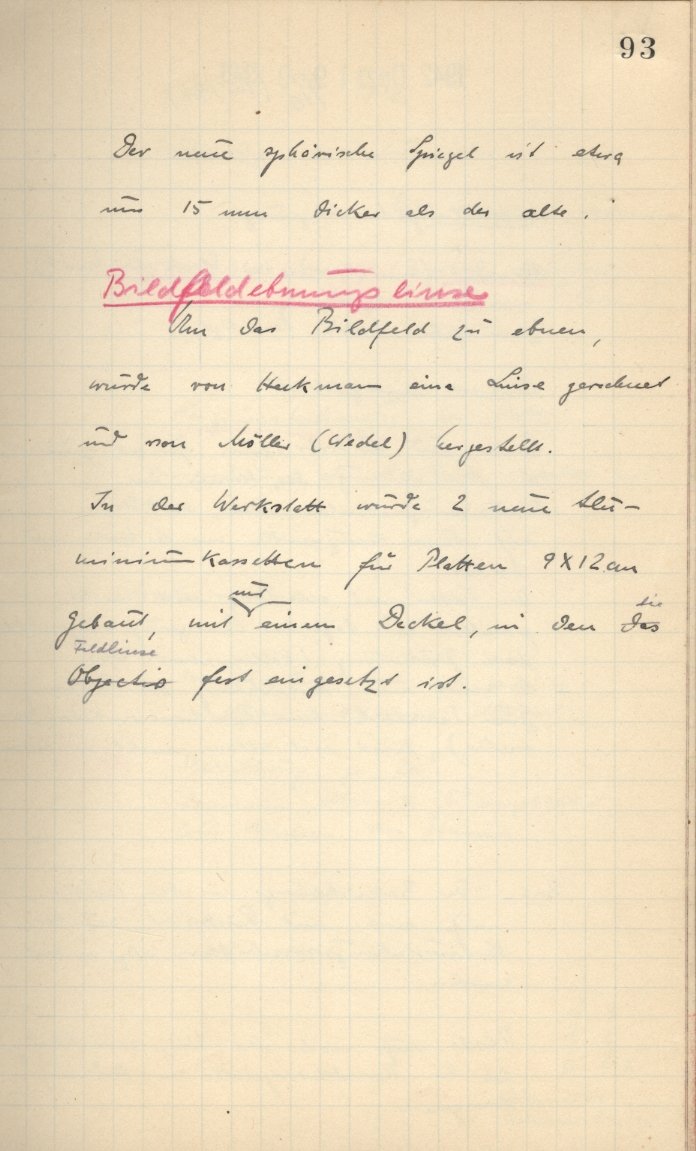 93
Der neue sphärische Spiegel ist etwa
um 15 mm dicker als der alte.
Bildfeldebnungslinse
Um das Bildfeld zu ebnen,
wurde von Heckmann eine Linse gerechnet
und von Möller (Wedel) hergestellt.
In der Werkstatt wurde 2 neue Alu-
minium Kassetten für Platten 9X12 cm
und
gebaut, mit einem Deckel, in den das die
Feldlinse
Objectiv fest eingesetzt ist.